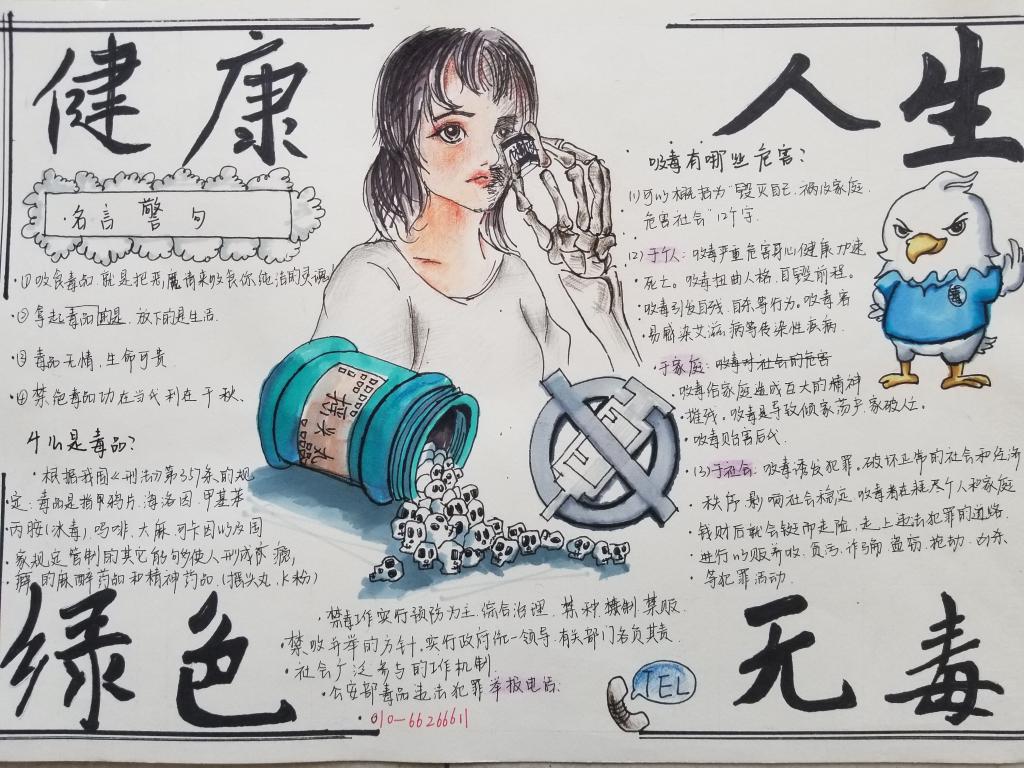 健康
人生
名言警句
①吸食毒品,就是把恶魔请来吸食你纯洁的灵魂
②拿起毒品 放下的是生活.
③毒品无情,生命可贵
④禁绝毒品功在当代利在千秋、
什么是毒品?
根据我国《刑法》第357条的规
定:毒品是指鸦片.海洛因.甲基苯
丙胺(冰毒),吗啡、大麻.可卡因以及国
家规定管制的其它能够使人形成瘾癖
的麻醉药品和精神药品.(摇头丸、K粉)
摇头丸
吸毒有哪些危害?
(1)可以概括为"毁灭自己.祸及家庭.
危害社会"12个字.
(2)于个人:吸毒严重危害身心健康加速
死亡。吸毒扭曲人格,自毁前程。
吸毒引发自残、自杀等行为。吸毒容
易感染艾滋病等传染性疾病.
于家庭:吸毒对社会的危害
吸毒给家庭造成巨大的精神
摧残。吸毒是导致倾家荡产.家破人亡。
吸毒贻害后代.
(3)于社会:吸毒诱发犯罪.破坏正常的社会和经济
秩序.影响社会稳定.吸毒者在耗尽个人和家庭
钱财后就会铤而走险,走上违法犯罪的道路.
进行以贩养吸.贪污.诈骗.盗窃.抢劫.凶杀
等犯罪活动.
禁毒工作实行预防为主.综合治理.禁种.禁制.禁贩.
禁吸并举的方针.实行政府统一领导.有关部门各负其责.
社会广泛参与的工作机制.
公安部毒品违法犯罪举报电话:
010-66266611
TEL
绿色
无毒